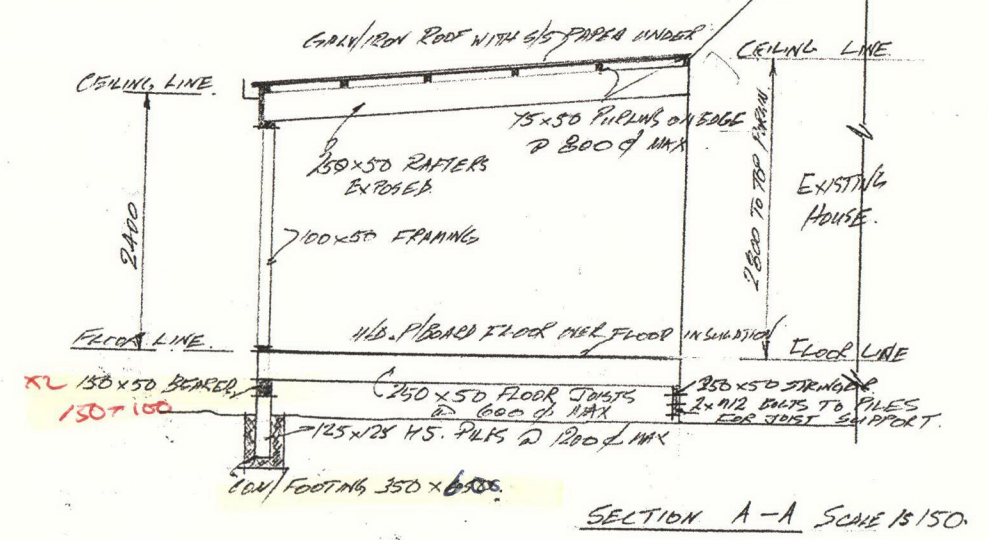 GALV/IRON ROOF WITH S/S PAPER UNDER
CEILING LINE.
CEILING LINE
75x50 PURLINS ON EDGE
@ 800 ¢ MAX
250x50 RAFTERS
EXPOSED.
2400
2800 TO TOP PURLIN.
EXISTING
HOUSE.
100x50 FRAMING
H/D. P/BOARD FLOOR OVER FLOOR INSULATION
FLOOR LINE.
FLOOR LINE
X2 150x50 BEARER
150+100
250x50 FLOOR JOISTS
@ 600 ¢ MAX
250x50 STRINGER
2x M12 BOLTS TO PILES
FOR JOIST SUPPORT.
125x125 H5. PILES @ 1200 ¢ MAX
CON/FOOTING 350 x 600.
SECTION A-A SCALE IS 150.